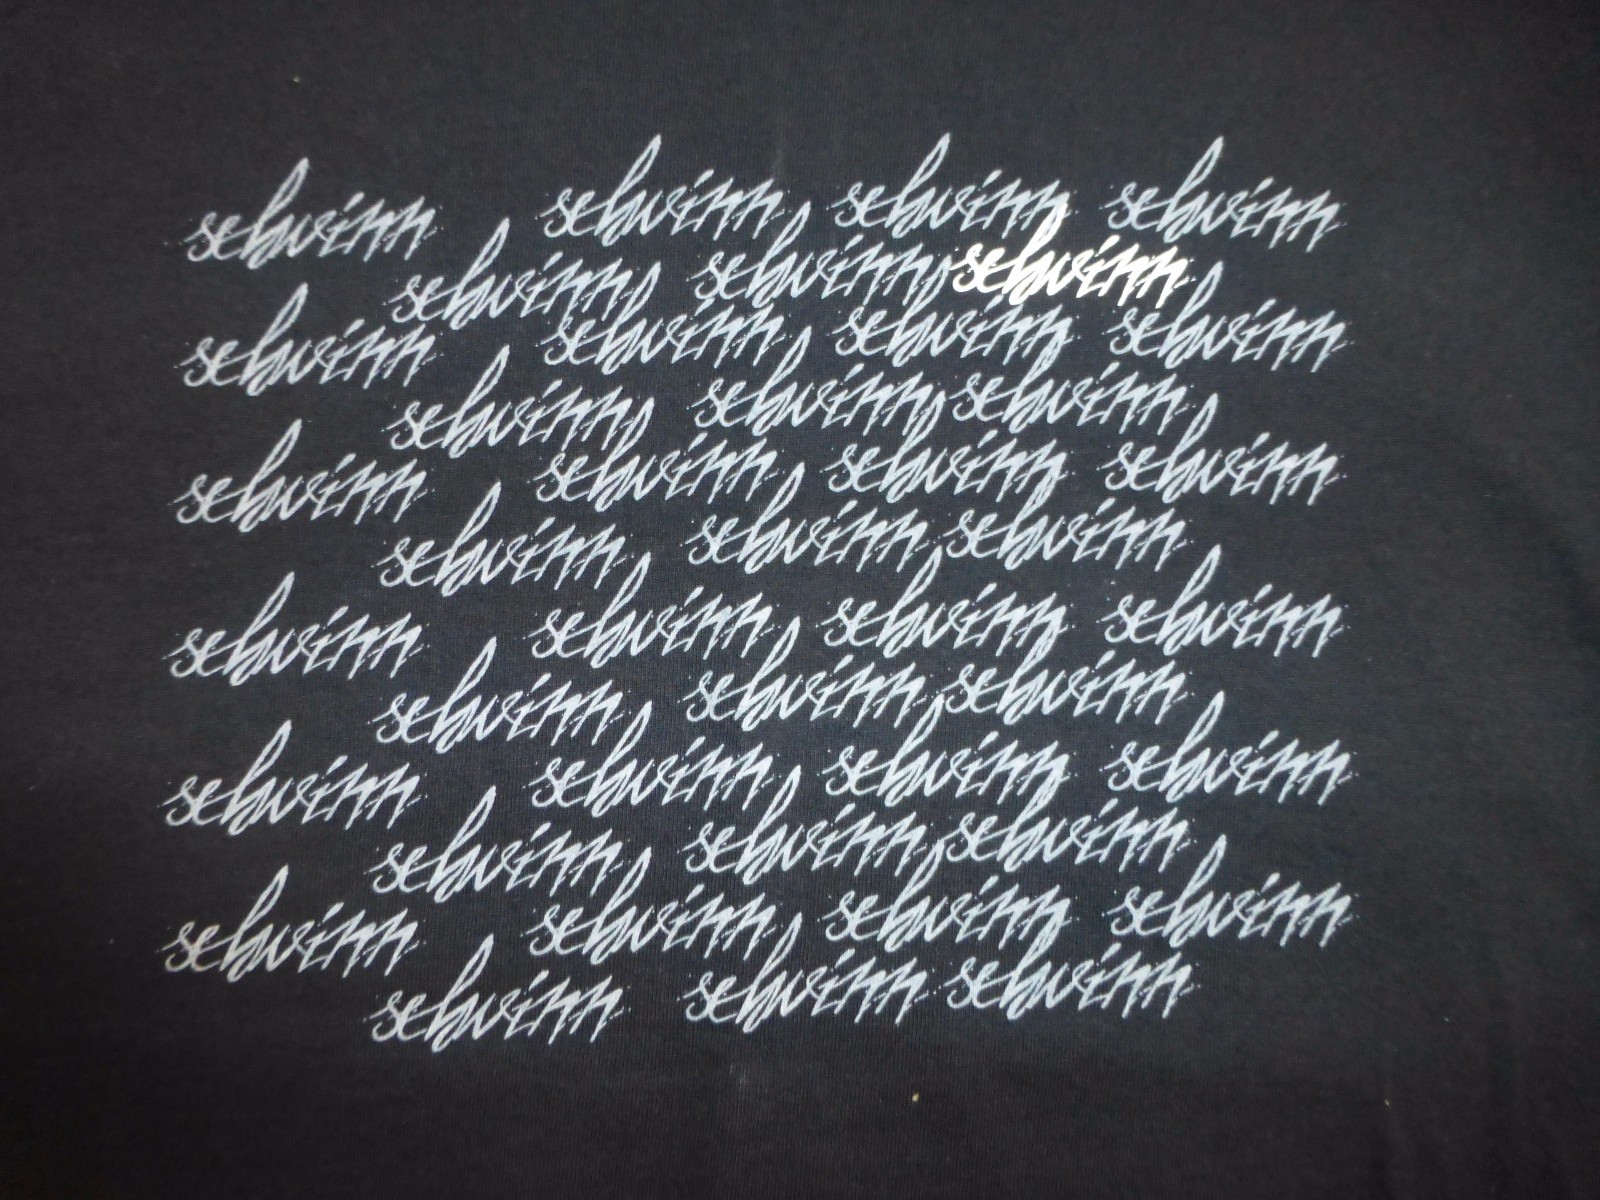 schwinn schwinn schwinn schwinn
schwinn schwinn schwinn
schwinn schwinn schwinn schwinn
schwinn schwinn schwinn
schwinn schwinn schwinn schwinn
schwinn schwinn schwinn
schwinn schwinn schwinn schwinn
schwinn schwinn schwinn
schwinn schwinn schwinn schwinn
schwinn schwinn schwinn
schwinn schwinn schwinn schwinn
schwinn schwinn schwinn